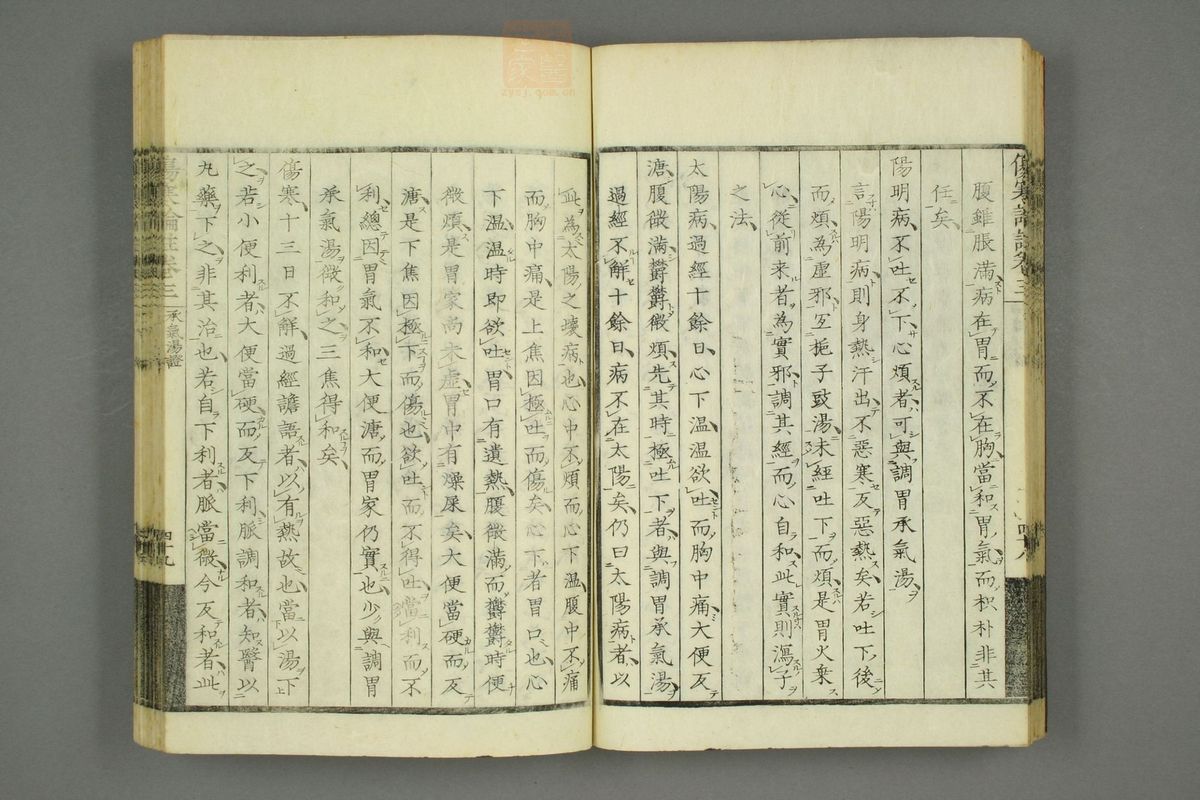 腹雖脹滿病在胃而不在胸當和胃氣而枳朴非其
任矣
陽明病不吐不下心煩者可與調胃承氣湯
言陽明病則身熱汗出不惡寒反惡熱矣若吐下後
而煩為虛邪互梔子豉湯未經吐下而煩是胃火乗
心從前来者為實邪調其經而心自和此實則瀉子
之法
太陽病過經十餘日心下温温欲吐而胸中痛大便反
溏腹微滿欝欝微煩先其時極吐下者與調胃承氣湯
過經不解十餘日病不在太陽矣仍曰太陽病者以
此為太陽之壞病也心中不煩而心下温腹中不痛
而胸中痛是上焦因極吐而傷矣心下者胃口也心
下温温時即欲吐胃口有遺熱腹微滿而欝欝時便
微煩是胃家尚未虛胃中有燥屎矣大便當硬而反
溏是下焦因極下而傷也欲吐而不得吐當利而不
利總因胃氣不和大便溏而胃家仍實也少與調胃
承氣湯微和之三焦得和矣
傷寒十三日不解過經譫語者以有熱故也當以湯下
之若小便利者大便當硬而反下利脈調和者知醫以
丸藥下之非其治也若自下利者脈當微今反和者此
傷寒論註卷三
承氣湯證
四十九